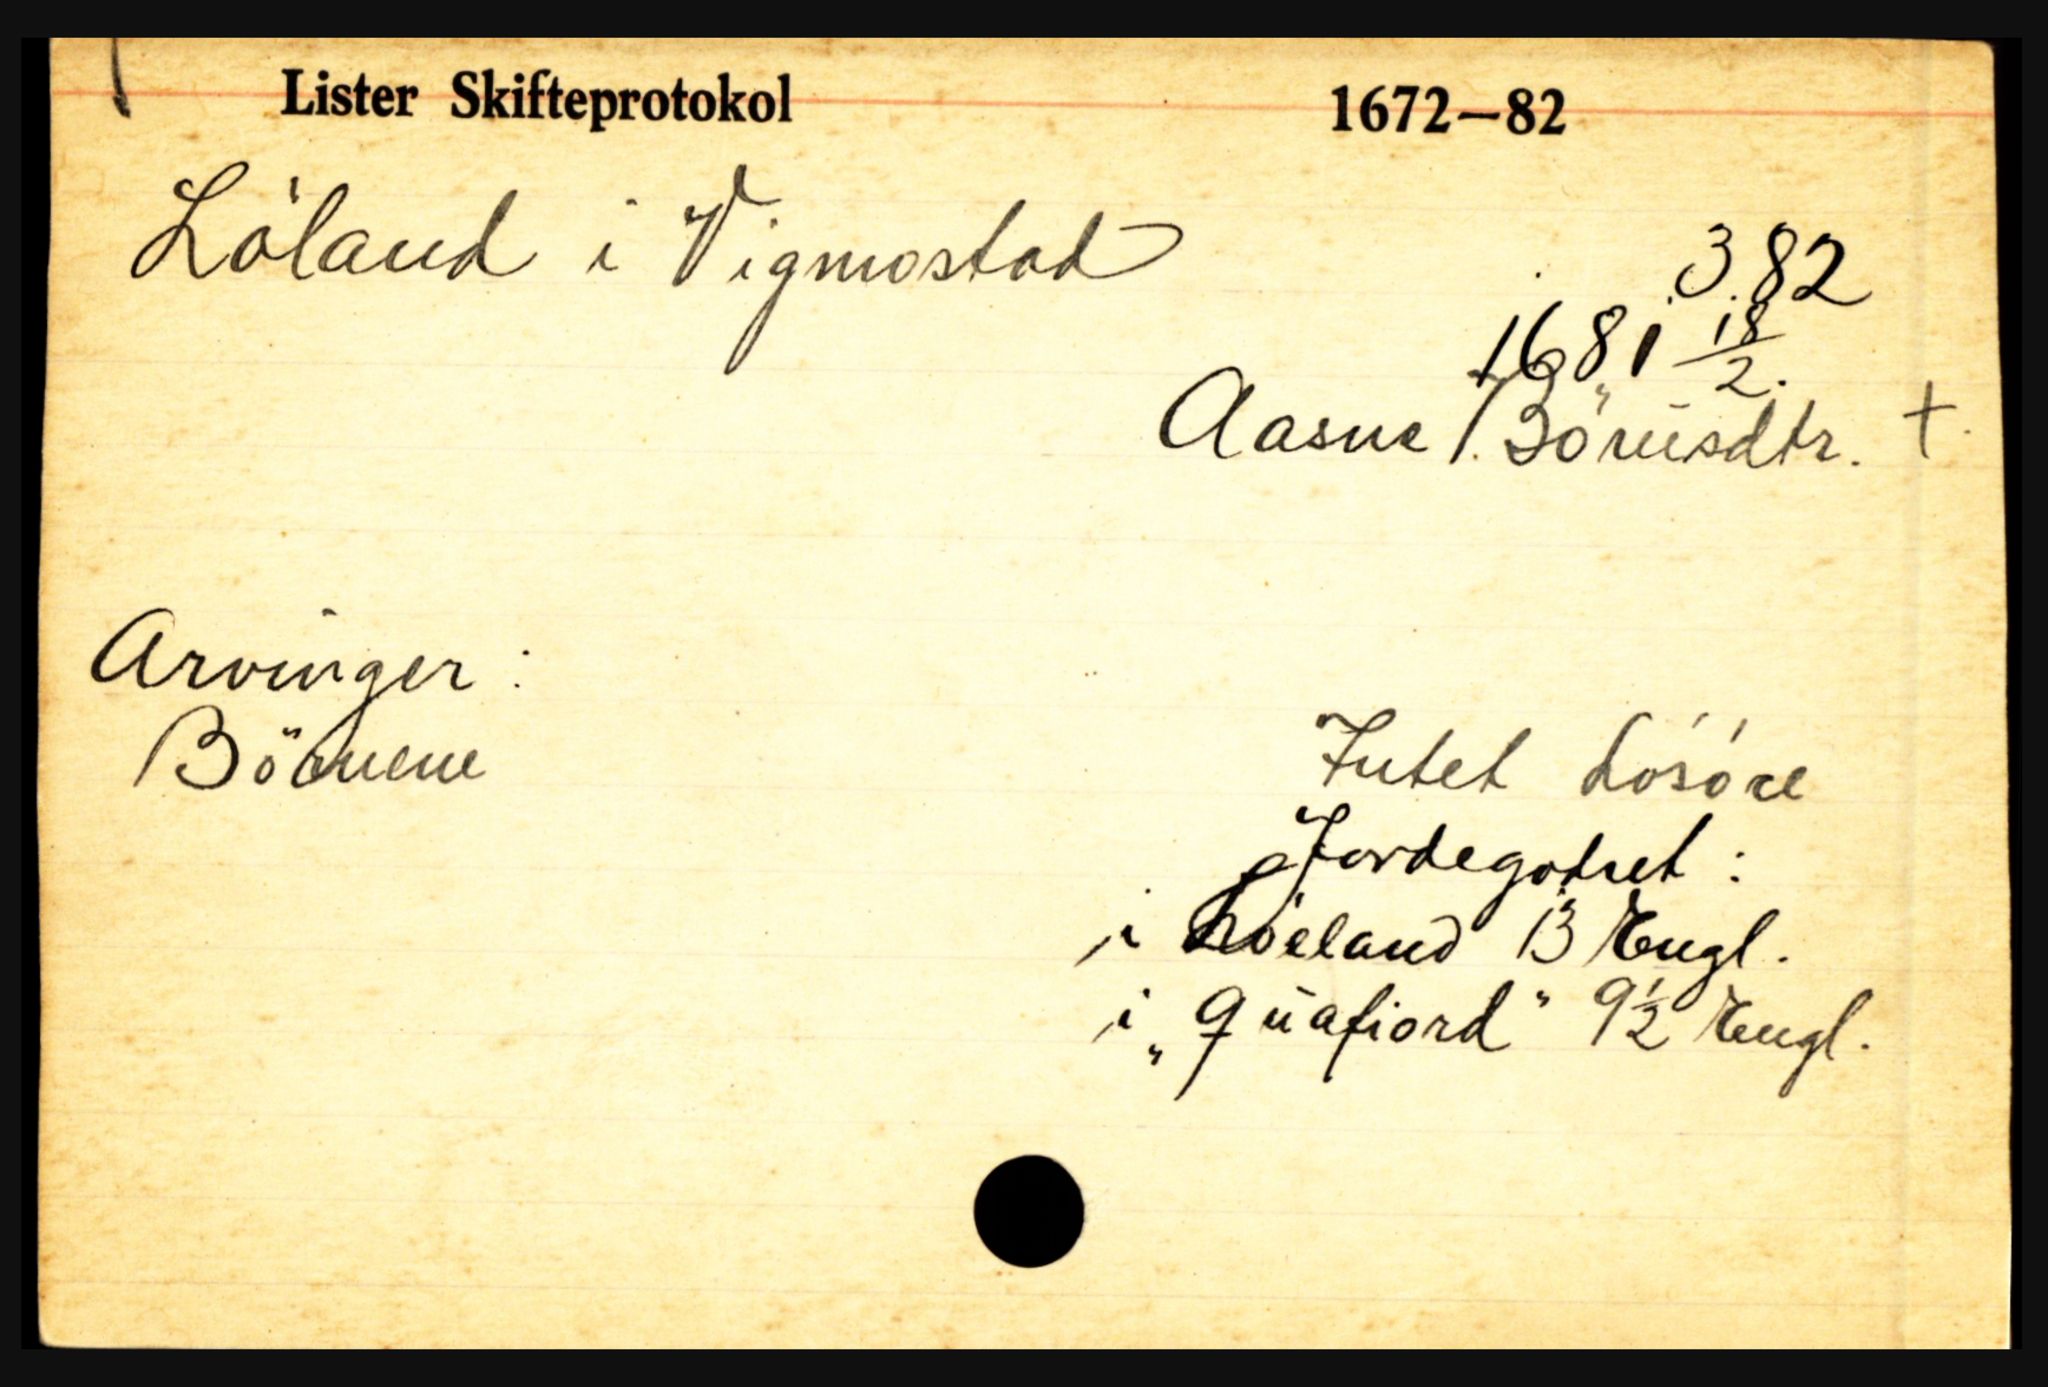 Lister Skifteprotokol 1672–82
Löland i Vigmostad
382
1681 18/2.
Aasne T. Börüisdtr. +
Arvinger:
Börnene
Intet Lösöre
Jordegotset:
i Löeland 13 Engl.
i "qüafiord" 9½ Engl.